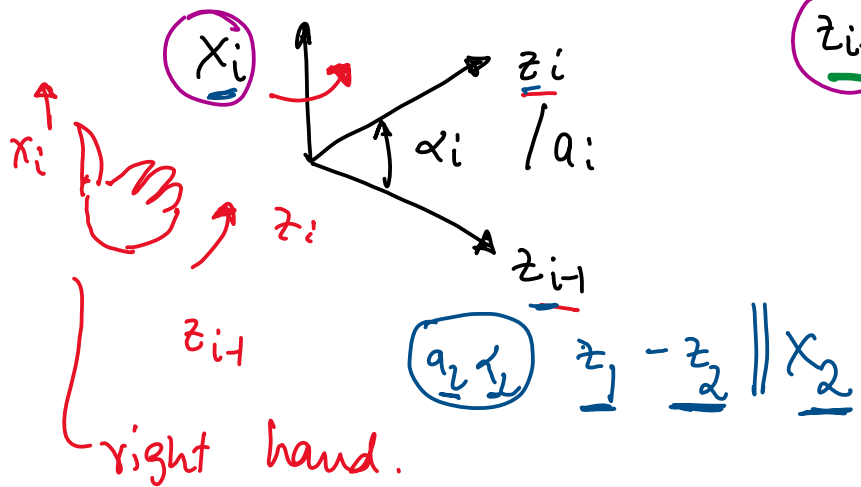 x_i
z_i
z_i-
x_i
α_i / a_i
z_i
z_{i-1}
z_{i-1}
a_2 α_2 z_1 - z_2 || x_2
right hand.